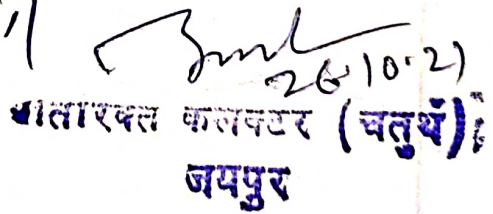 26.10.21
अतिरिक्त कलक्टर (चतुर्थ)
जयपुर